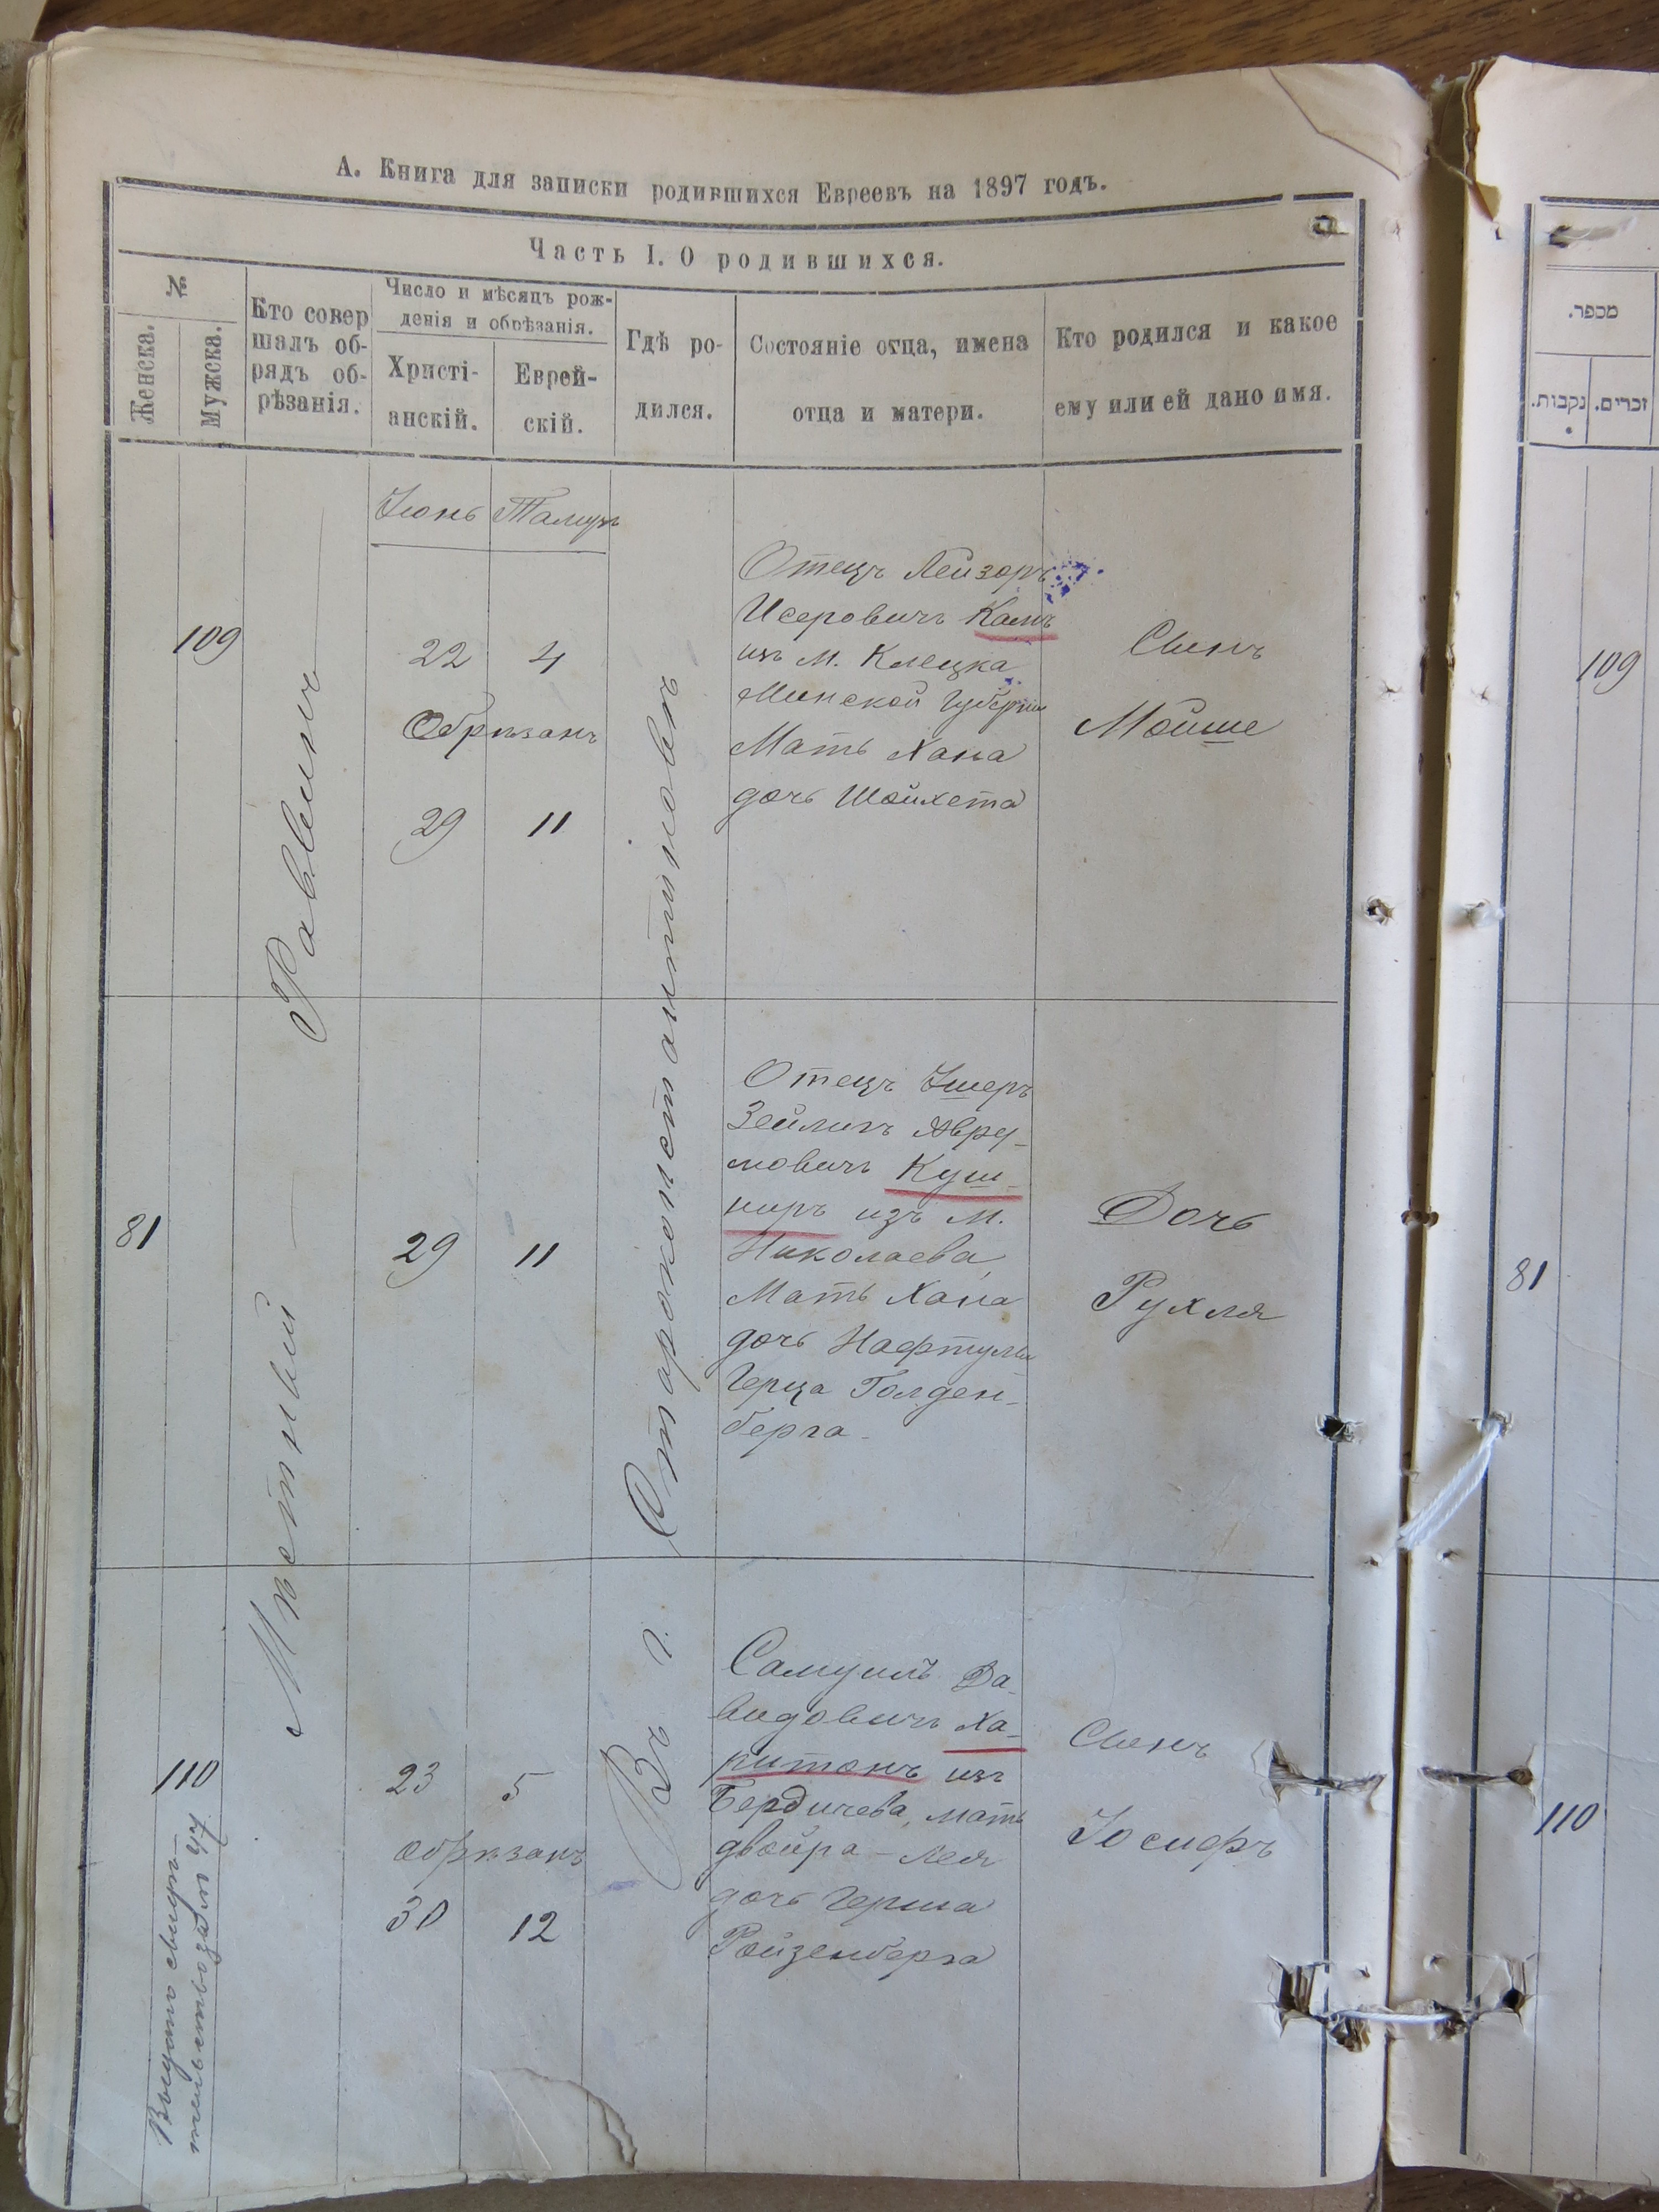 А. Книга для записки родившихся Евреевъ на 1897 годъ.
Часть I. О родившихся.
№
Женска.
Мужска.
Кто совер
шалъ об-
рядъ об-
рѣзанія.
Число и мѣсяцъ рож-
денія и обрѣзанія.
Христі-
анскій.
Еврей-
скій.
Гдѣ ро-
дился.
Состояніе отца, имена
отца и матери.
Кто родился и какое
ему или ей дано имя.
Мѣстный Раввинъ
Въ г. Староконстантиновѣ
Іюнь Тамузъ
109
22 4
Обрѣзанъ
29 11
Отецъ Лейзоръ
Исеровичъ
изъ М. Клецка
Минской Губерніи
Мать Хана
дочь Шойхета
Сынъ
Мойше
81
29 11
Отецъ Ушеръ
Зейликъ Авру-
мовичъ Куш-
ниръ изъ М.
Николаева,
Мать Хана
дочь Нафтулы
Герца Голден-
берга.
Дочь
Рухля
110
23 5
обрѣзанъ
30 12
Самуилъ Да-
видовичъ Ха-
ритонъ изъ
Бердичева, мать
двойра-Лея
дочь Герша
Ройзенберга
Сынъ
Іосифъ
Выдано свидѣ-
тельство
מספר.
נקבות.
זכרים.
109
81
110